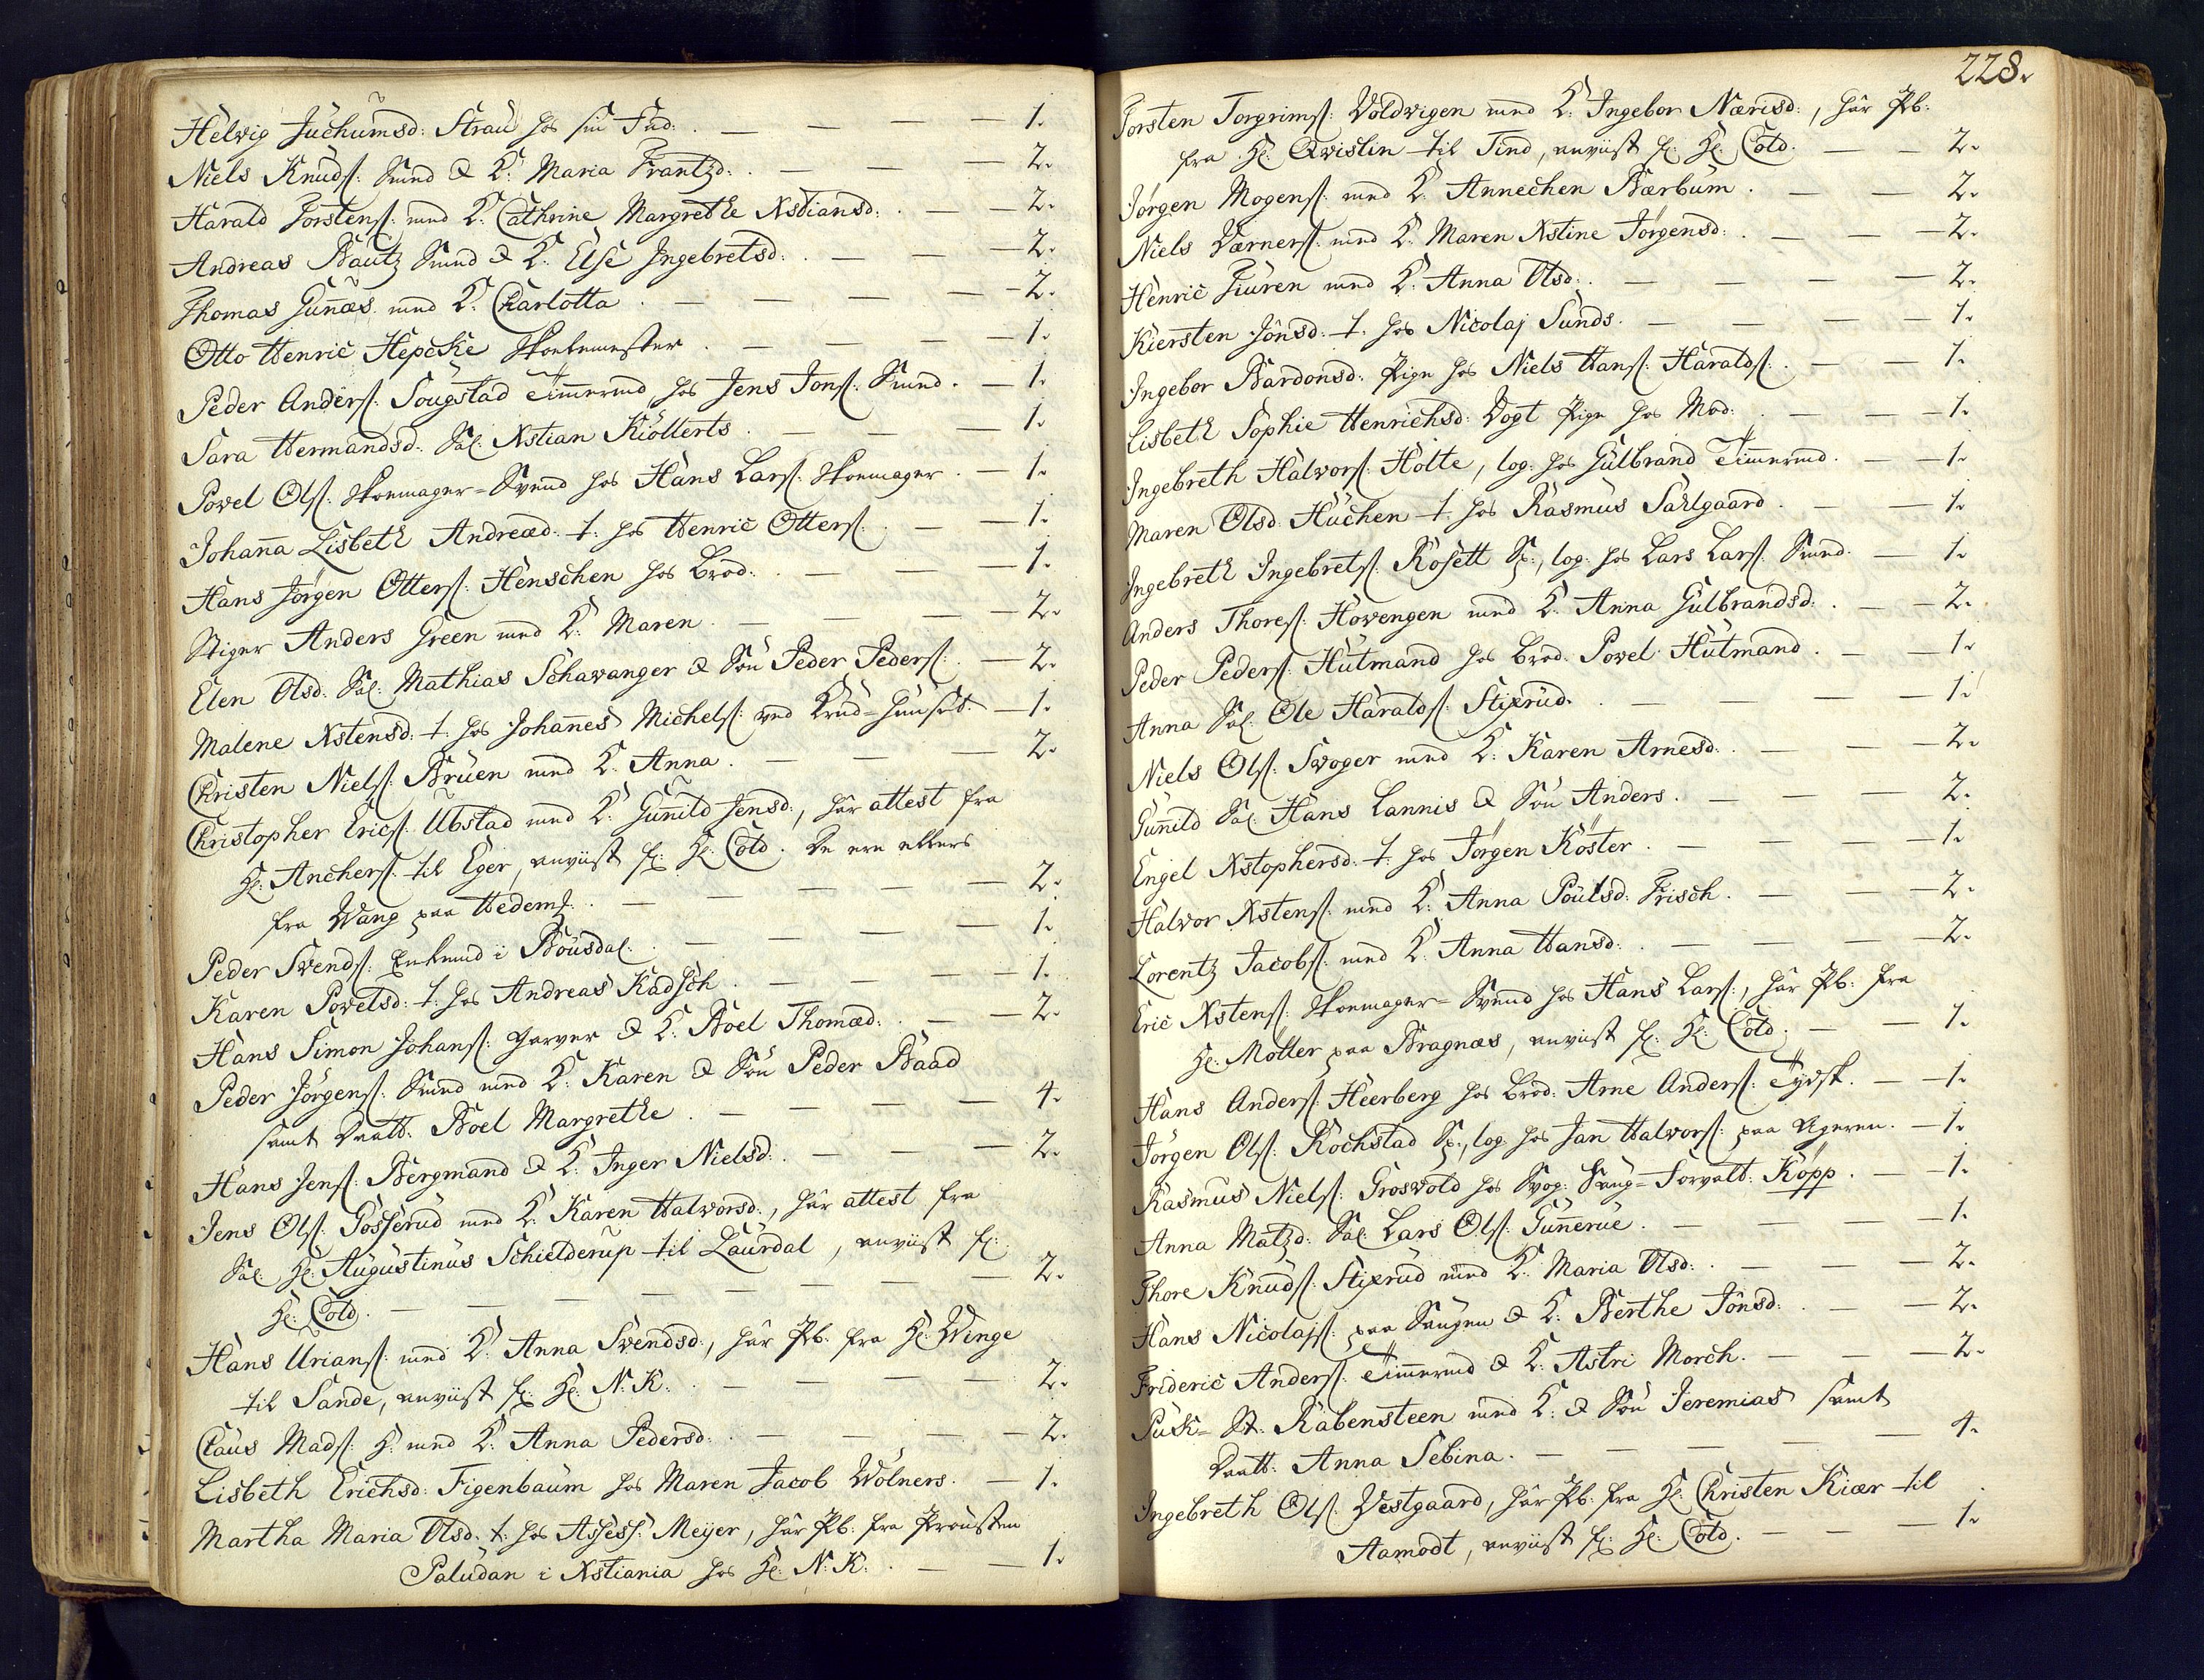 Helvig Juchumsd: Strau hos sin Fad: . — — — — 1.
Niels Knuds: Smed & K: Maria Frantzd: . — — — 2.
Harald Torstens: med K: Cathrine Margrethe Xstiansd: . — — 2.
Andreas Bautz Smed & K: Else Ingebretsd: . — — — 2.
Thomas Gunæs med K: Charlotta . — — — — 2.
Otto Henric Hepcke Skolemester . — — — — 1.
Peder Anders: Sougstad Timermd hos Jens Jons: Smed . — 1.
Sara Hermandsd: Sal: Xstian Kiöllerts . — — — 1.
Povel Ols: Skoemager-Svend hos Hans Lars: Skoemager . — 1.
Johanna Lisbeth Andread: t: hos Henric Otters: . — — 1.
Hans Jörgen Otters: Henschen hos Brod: . — — — 1.
Stiger Anders Green med K: Maren . — — — — 2.
Elen Olsd: Sal: Mathias Schavanger & Sön Peder Peders: . — 2.
Malene Xstensd: t: hos Johannes Michels: ved Krud-Huuset . — 1.
Christen Niels: Bruen med K: Anna . — — — 2.
Christopher Erics: Ubstad med K: Gunild Jensd:, har attest fra
Hr: Anchers: til Eger, anviist f: Hr: Cold. De ere ellers
fra Wang paa Hedem: . — — — — — 2.
Peder Svends: Enkemd i Bousdal . — — — — 1.
Karen Povelsd: t: hos Andreas Kadsch . — — — — 1.
Hans Simon Johans: Farver & K: Boel Thomæd: . — — 2.
Peder Jörgens: Smed med K: Karen & Sön Peder Baad
samt Datt: Boel Margrethe . — — — — 4.
Hans Jens: Bergmand & K: Inger Nielsd: . — — — 2.
Jens Ols: Gosserud med K: Karen Halvorsd:, har attest fra
Sal: Hr: Augustinus Schielderup til Laurdal, anviist f:
Hr: Cold. — — — — — — — 2.
Hans Urians: med K: Anna Svendsd:, har Pb: fra Hr: Winge
til Sande, anviist f: Hr: N: K: . — — — — 2.
Claus Mads: H: med K: Anna Pedersd: . — — — — 2.
Lisbeth Erichsd: Figenbaum hos Maren Jacob Wölners . — 1.
Martha Maria Olsd: t: hos Assess: Meyer, har Pb: fra Provsten
Paludan i Xstiania hos Hr: N: K: . — — 1.
228.
Torsten Torgrims: Voldvigen med K: Ingebor Nærisd:, har Pb:
fra Hr: Qvislin til Tind, anviist f: Hr: Cold. — — 2.
Jørgen Mogens: med K: Annechen Bærbum . — — 2.
Niels Værners: med K: Maren Xstine Jörgensd: . — — — 2.
Henric Fiuren med K: Anna Olsd: . — — — — 2.
Kiersten Jönsd: t: hos Nicolaj Sunds . — — — — 1.
Ingebor Bardonsd: Pige hos Niels Hans: Haralds: . — — 1.
Lisbeth Sophie Henrichsd: Vogt Pige hos Mod: . — — — 1.
Ingebreth Halvors: Holte, log: hos Gulbrand Timermd . — — 1.
Maren Olsd: Huchen t: hos Rasmus Sahlgaard . — — — 1.
Ingebreth Ingebrets: Rosett Sp:, log: hos Lars Lars: Smed . — 1.
Anders Thores: Hovengen med K: Anna Gulbrandsd: . — — 2.
Peder Peders: Hutmand hos Brod: Povel Hutmand . — — 1.
Anna Sal: Ole Haralds: Stixrud . — — — — 1.
Niels Ols: Svoger med K: Karen Arnesd: . — — — 2.
Gunild Sal: Hans Lannis & Sön Anders . — — — 2.
Engel Xstophersd: t: hos Jørgen Köster . — — — — 1.
Halvor Xstens: med K: Anna Poulsd: Frisch . — — — 2.
Lorentz Jacobs: med K: Anna Hansd: . — — — — 2.
Eric Xstens: Skoemager-Svend hos Hans Lars:, har Pb: fra
Hr: Möller paa Bragnæs, anviist f: Hr: Cold. — — 1.
Hans Anders: Heerberg hos Brod: Arne Anders: Tydsk . — — 1.
Jörgen Ols: Rochstad Sp:, log: hos Jan Halvors: paa Ageren . — 1.
Rasmus Niels: Grosvold hos Svog: Saug-Forvalt: Köpp . — — 1.
Anna Matzd: Sal: Lars Ols: Gunnerue . — — — — 1.
Thore Knuds: Stixrud med K: Maria Olsd: . — — — 2.
Hans Nicolajs: paa Saugen & K: Berthe Jönsd: . — — 2.
Frideric Anders: Timermd & K: Astri Morch . — — — 2.
Puk-St: Rabensteen med K: & Sön Jeremias samt
Datt: Anna Sebina . — — — — — 4.
Ingebreth Ols: Vestgaard, har Pb: fra Hr: Christen Kiær til
Aamodt, anviist f: Hr: Cold. — — — 1.